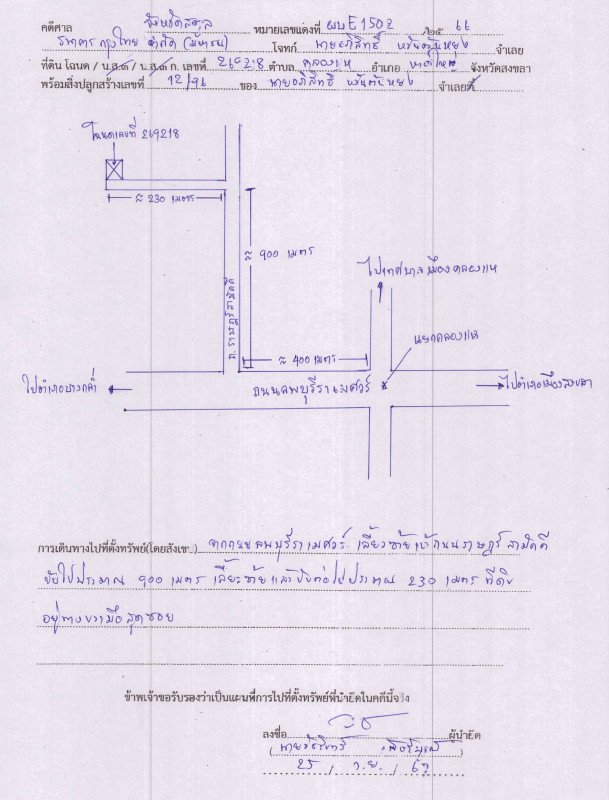 คดีศาล จังหวัดสตูล หมายเลขแดงที่ ผบE1502 /๒๕ 66
ธนาคารกรุงไทย จำกัด (มหาชน) โจทก์ นายอภิสิทธิ์ จำเลย
ที่ดิน โฉนด / น.ส.๓ / น.ส.๓ ก. เลขที่ 269218 ตำบล คลองแห อำเภอ หาดใหญ่ จังหวัดสงขลา
พร้อมสิ่งปลูกสร้างเลขที่ 12/96 ของ นายอภิสิทธิ์ จำเลยที่
โฉนดเลขที่ 269218
≈ 230 เมตร
≈ 900 เมตร
ไปเทศบาลเมืองคลองแห
ถ.ราษฎร์สามัคคี
แยกคลองแห
≈ 400 เมตร
ไปอำเภอบางกล่ำ
ถนนลพบุรีราเมศวร์
ไปอำเภอเมืองสงขลา
การเดินทางไปที่ตั้งทรัพย์(โดยสังเขป) จากถนนลพบุรีราเมศวร์ เลี้ยวซ้ายเข้าถนนราษฎร์สามัคคี
ขับไปประมาณ 900 เมตร เลี้ยวซ้ายแล้วขับต่อไปประมาณ 230 เมตร ที่ดิน
อยู่ทางขวามือสุดซอย
ข้าพเจ้าขอรับรองว่าเป็นแผนที่การไปที่ตั้งทรัพย์ที่นำยึดในคดีนี้จริง
ลงชื่อ ผู้นำยึด
25 / ก.ย. / 67